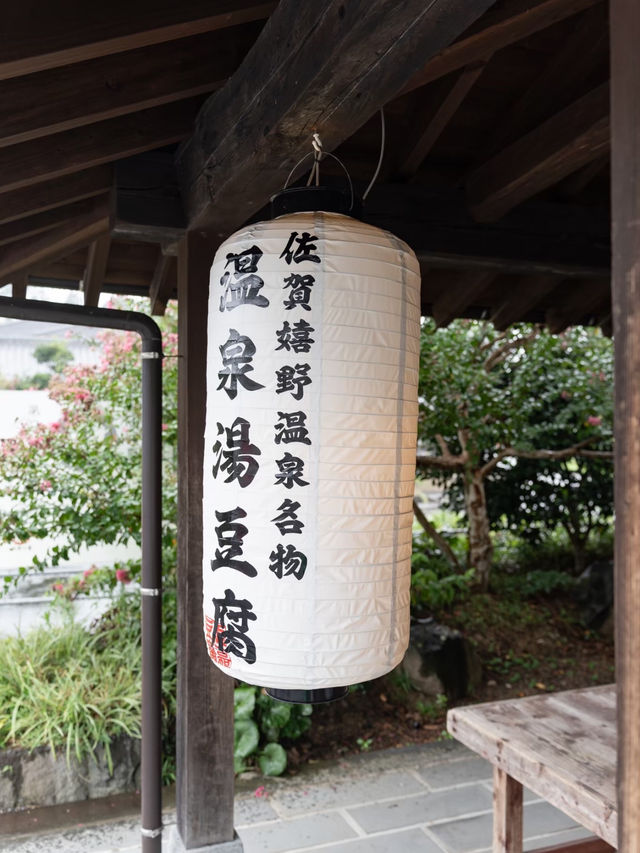 佐賀嬉野温泉名物
温泉湯豆腐